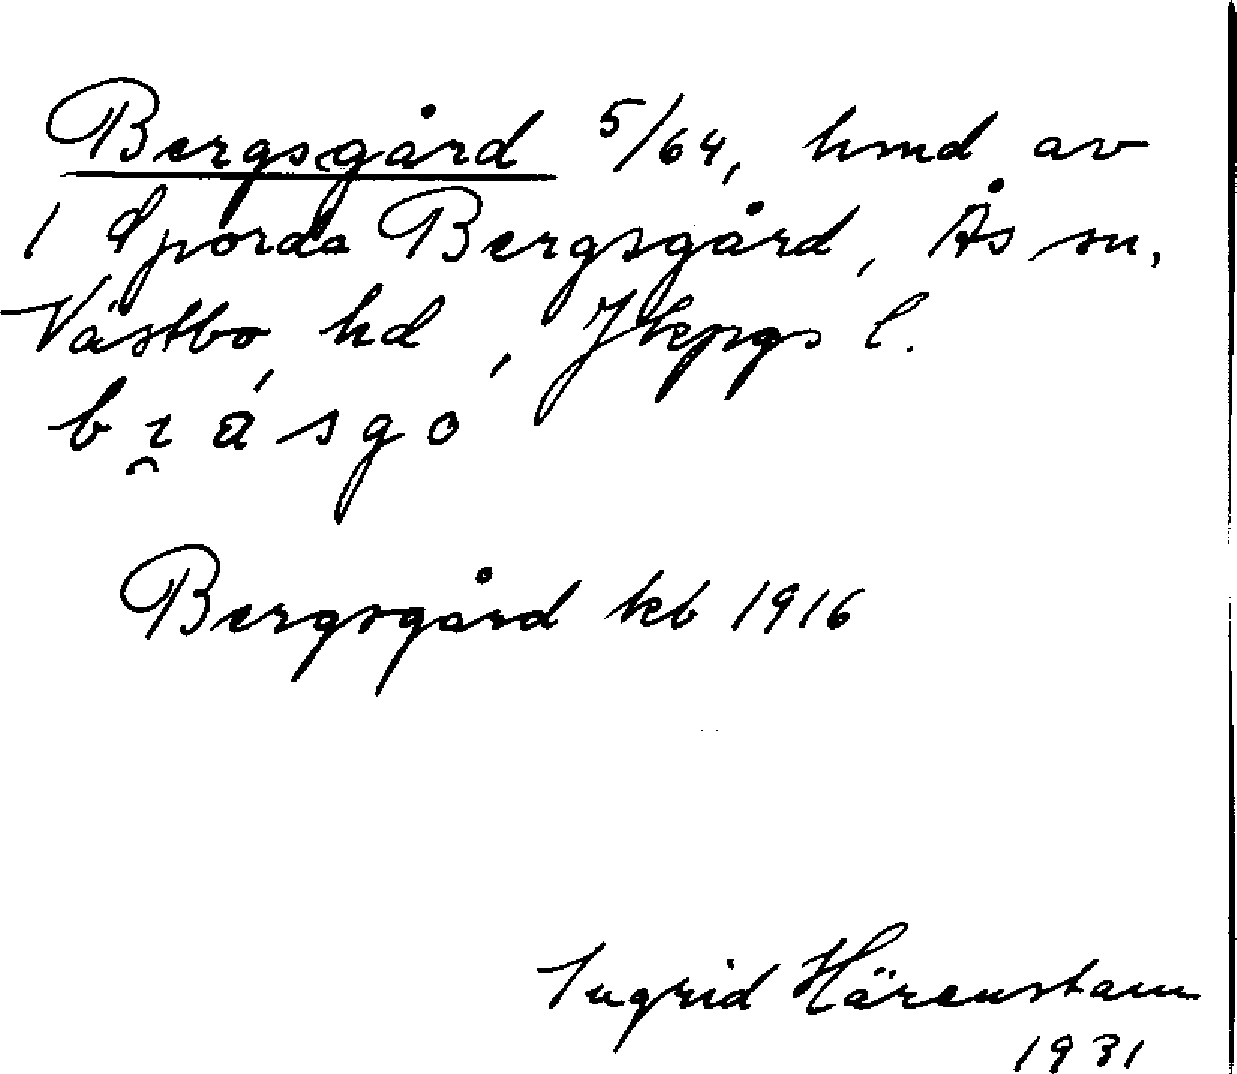 Bergsgård 5/64, hmd av
1 Sporda Bergsgård, Ås sn,
Västbo hd, Jkpgs l.
Bergsgård kb 1916
Ingrid Härenstam
1931